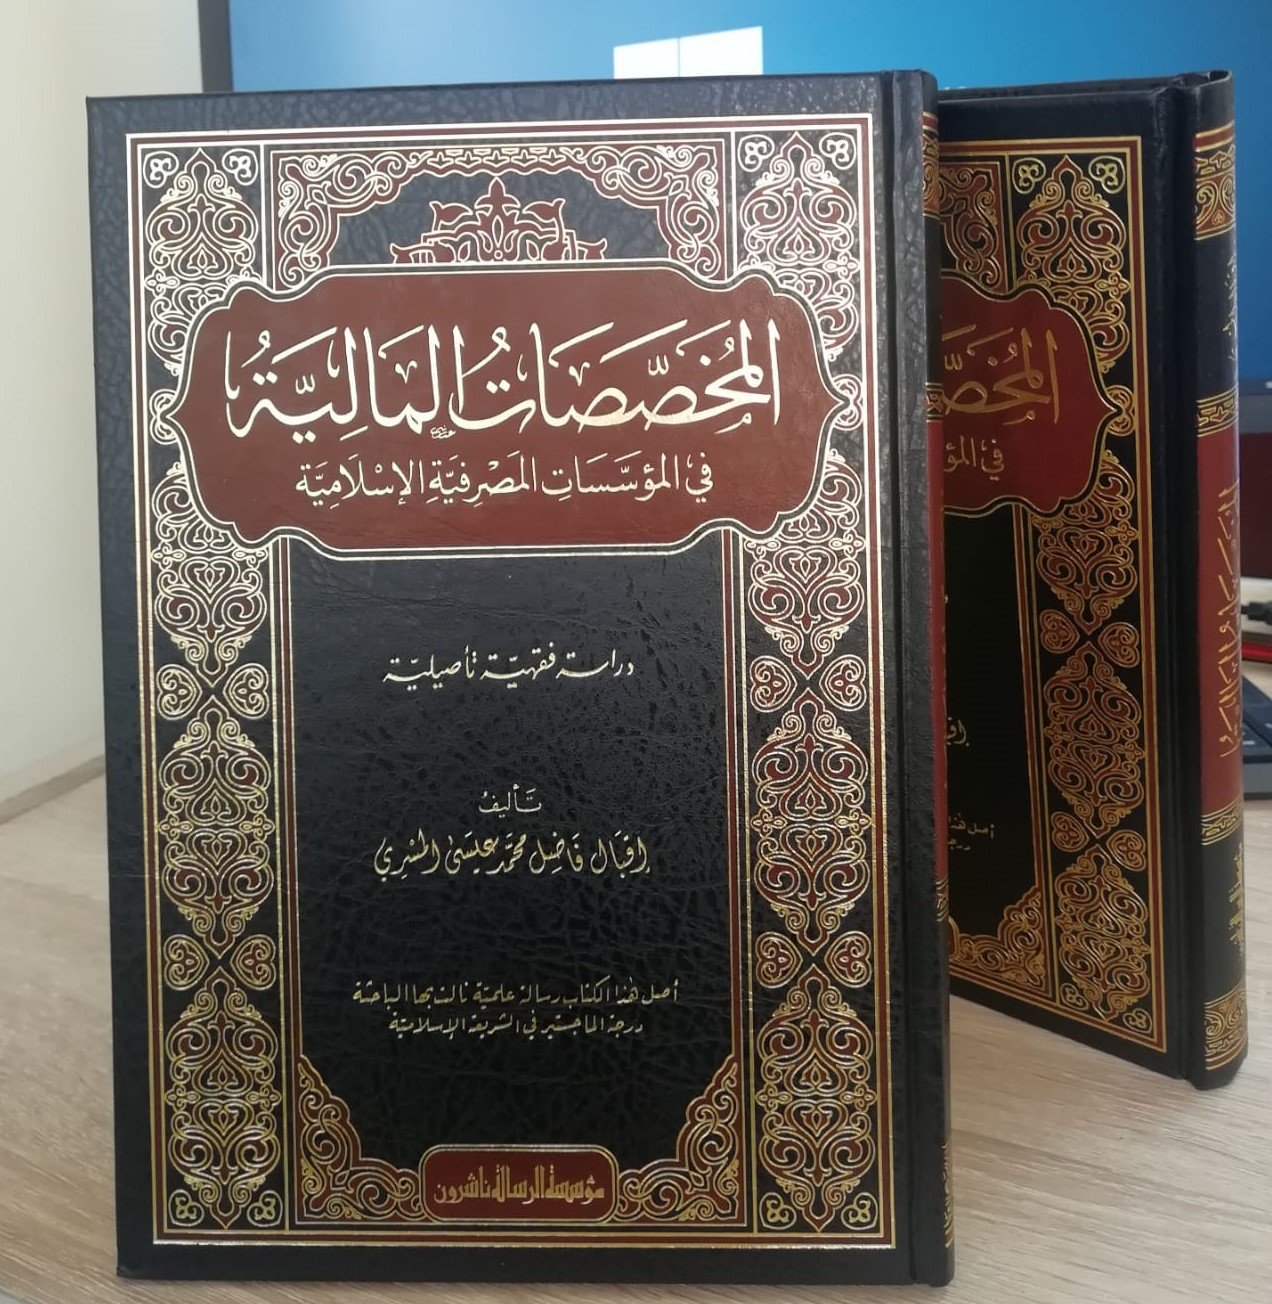 المُخَصَّصَاتُ المَالِيَّةُ
في المؤسَّسَاتِ المَصْرِفيَّةِ الإسْلَامِيَّة
دراسة فقهيّة تأصيليّة
تَأليفُ
إقبَال فَاضِل محمَّد عيسَىٰ المسْرِي
أصل هٰذا الكتاب رسالة علميّة نالت بها الباحثة
درجة الماجستير في الشريعة الإسلاميّة
مؤسسة الرسالة ناشرون
المُخَصَّ
في المؤ
إقبَ
أصل هٰذا
درجة